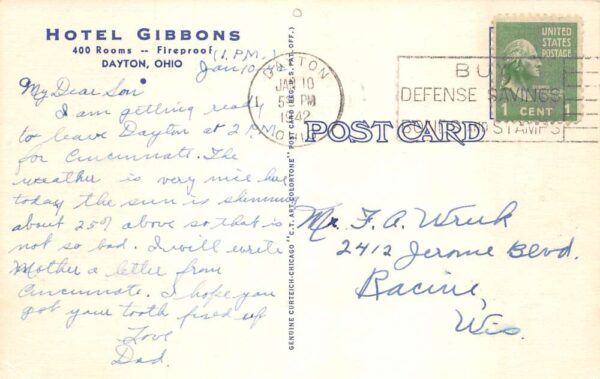 HOTEL GIBBONS
400 Rooms -- Fireproof
DAYTON, OHIO
(1. P.M.)
Jan 10-42
My Dear Son
I am getting ready
to leave Dayton at 2 P.M.
for Cincinnate. The
weather is very nice here
today the sun is shinning
about 25° above so that is
not so bad. I will write
Mother a letter from
Cincinnate. I hope you
got your tooth fixed up
Love
Dad.
GENUINE CURTEICH-CHICAGO "C.T. ART-COLORTONE" POST CARD (REG. U.S. PAT. OFF.)
DAYTON
JAN 10
5 PM
1942
OHIO
BUY
DEFENSE SAVINGS
BONDS AND STAMPS
UNITED
STATES
POSTAGE
1 CENT 1
POST CARD
Mr. F. A. Wruk
2412 Jerome Blvd.
Racine,
Wis.